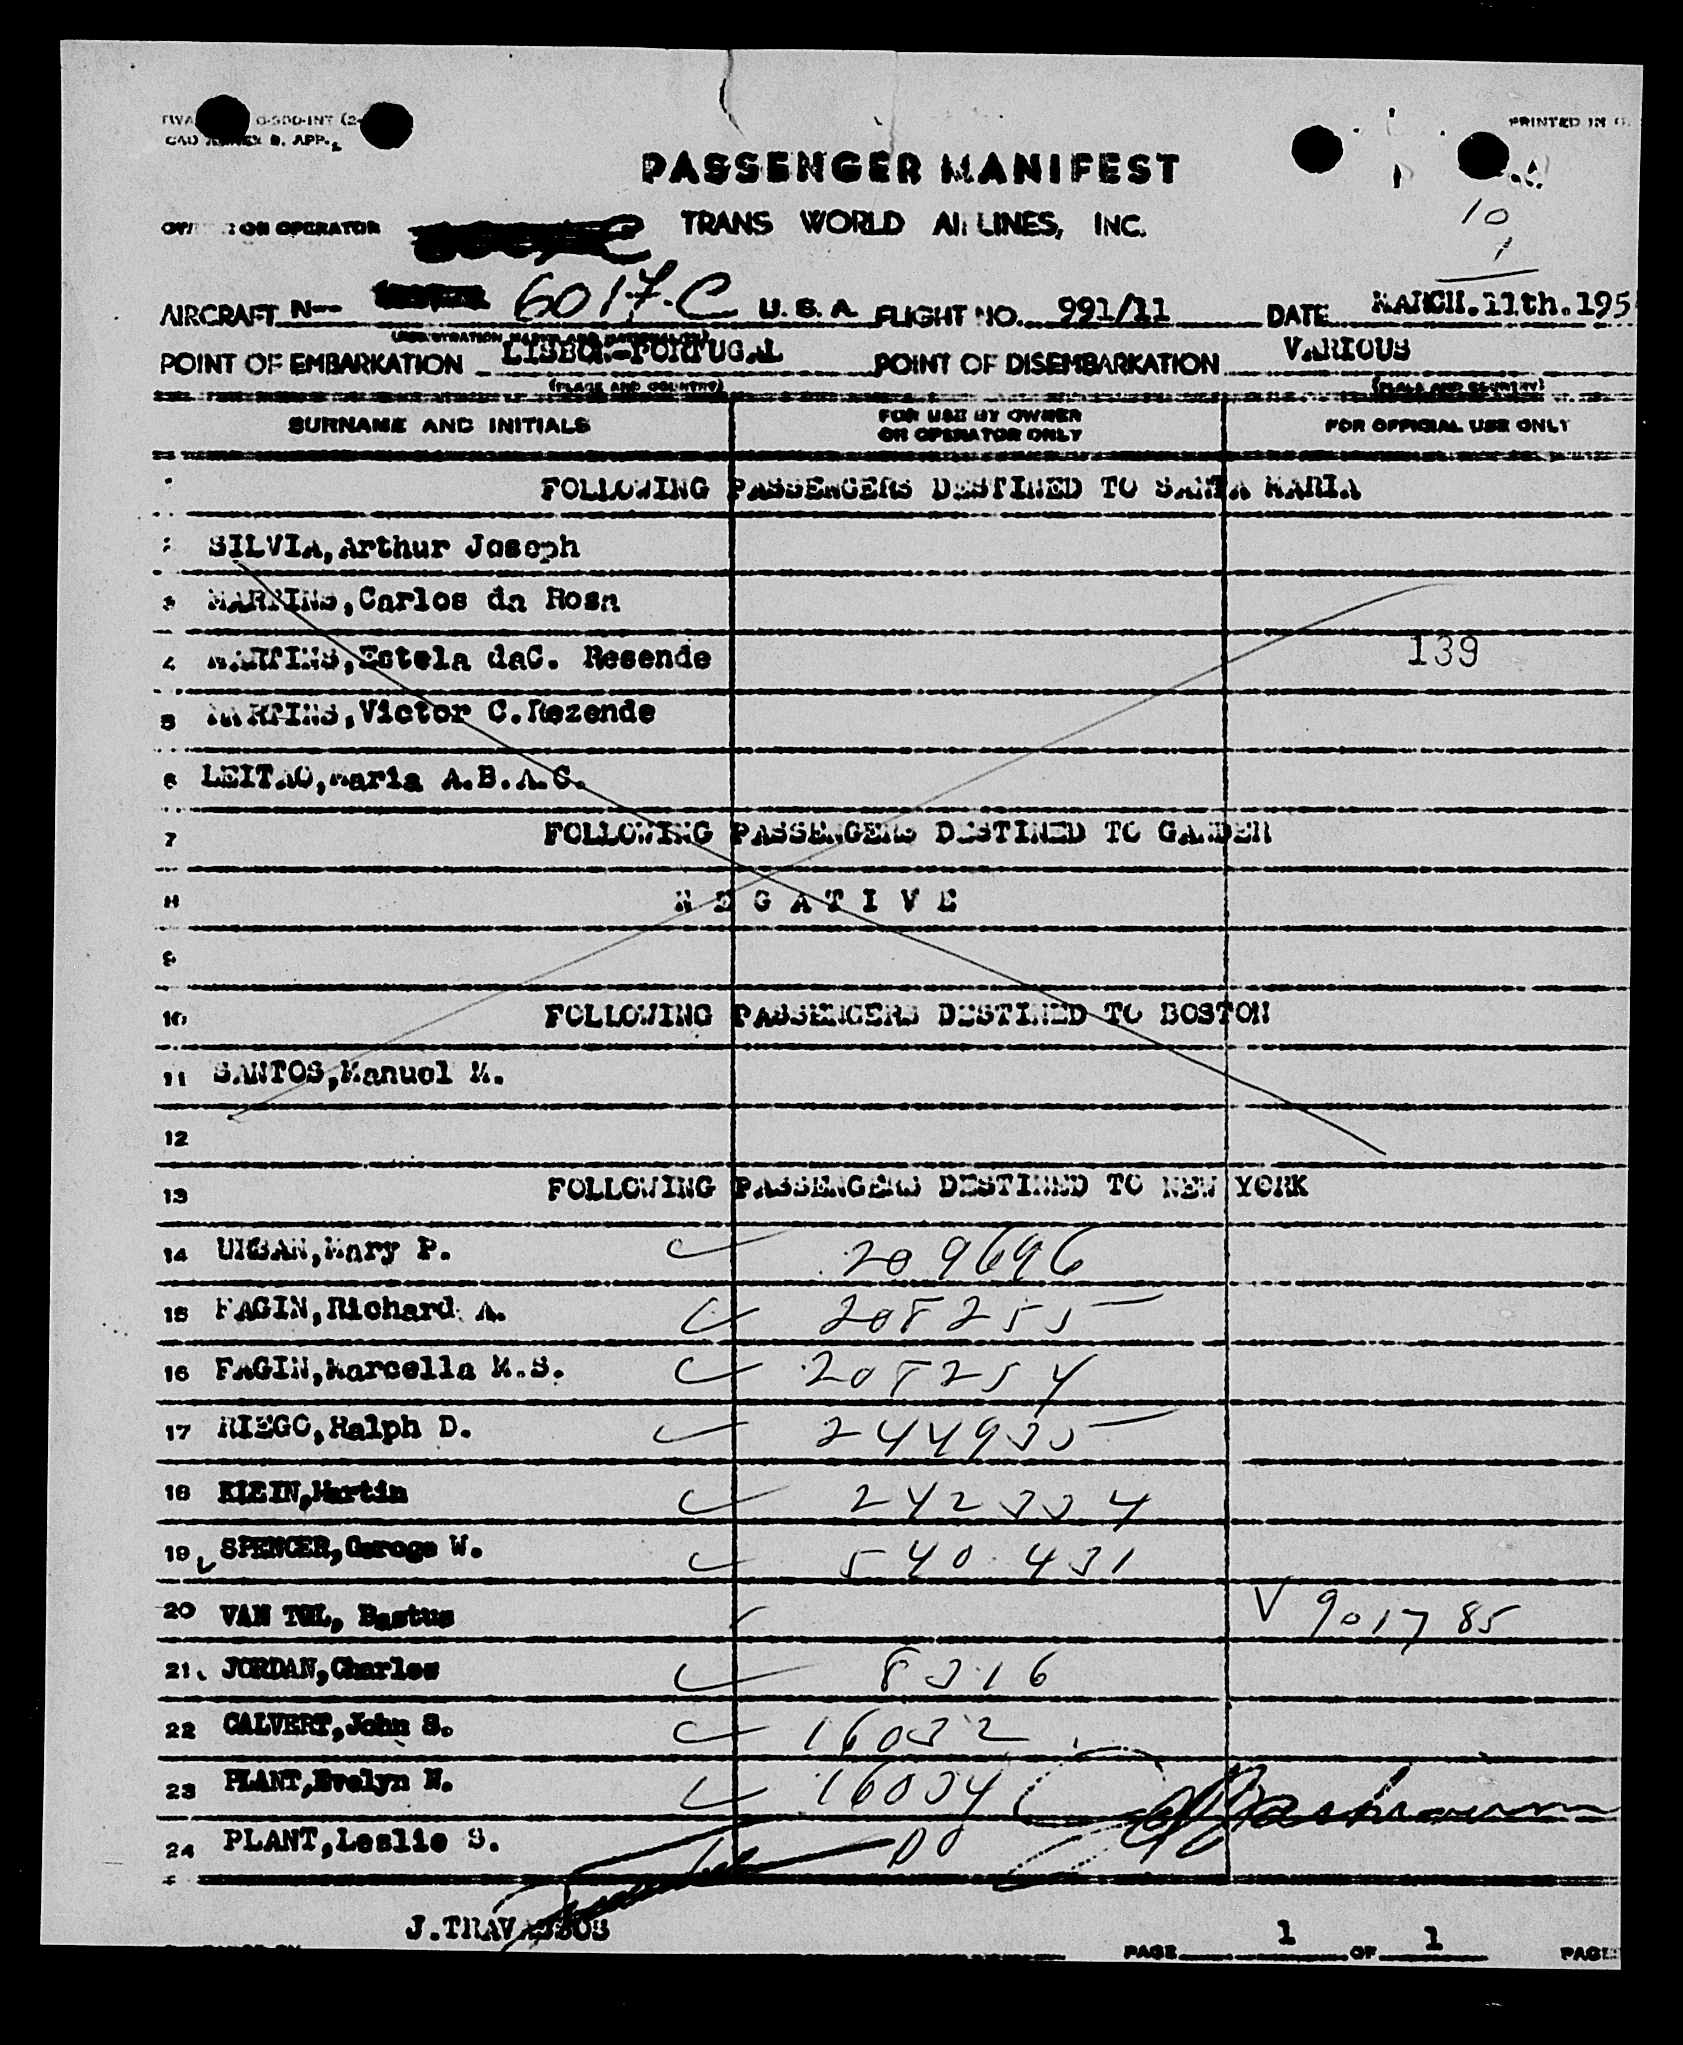 PRINTED IN
PASSENGER MANIFEST
OR OPERATOR TRANS WORLD AIRLINES, INC.
10
1
AIRCRAFT N-- 6017-C U. S. A. FLIGHT NO. 991/11 DATE MARCH.11th.195
POINT OF EMBARKATION LISBON-PORTUGAL POINT OF DISEMBARKATION VARIOUS
(PLACE AND COUNTRY) (PLACE AND COUNTRY)
SURNAME AND INITIALS FOR USE BY OWNER OR OPERATOR ONLY FOR OFFICIAL USE ONLY
FOLLOWING PASSENGERS DESTINED TO SANTA MARIA
2 SILVIA,Arthur Joseph
3 MARTINS,Carlos da Rosa
4 MARTINS,Estela daC. Resende 139
5 MARTINS,Victor C.Rezende
6 LEITAO,Maria A.B.A.C.
7 FOLLOWING PASSENGERS DESTINED TO GANDER
8 N E G A T I V E
9
10 FOLLOWING PASSENGERS DESTINED TO BOSTON
11 SANTOS,Manuel M.
12
13 FOLLOWING PASSENGERS DESTINED TO NEW YORK
14 URBAN,Mary P. 209696
15 FAGIN,Richard A. 208255
16 FAGIN,Marcella M.S. 208254
17 RIEGO,Ralph D. 244935
18 KLEIN,Martin 242334
19 SPENCER,Geroge W. 540431
20 VAN TOL, Bastus V 901785
21 JORDAN,Charles 8316
22 CALVERT,John S. 16032
23 PLANT,Evelyn N. 16034
24 PLANT,Leslie S. DO
J.TRAVASSOS
PAGE 1 OF 1 PAGE